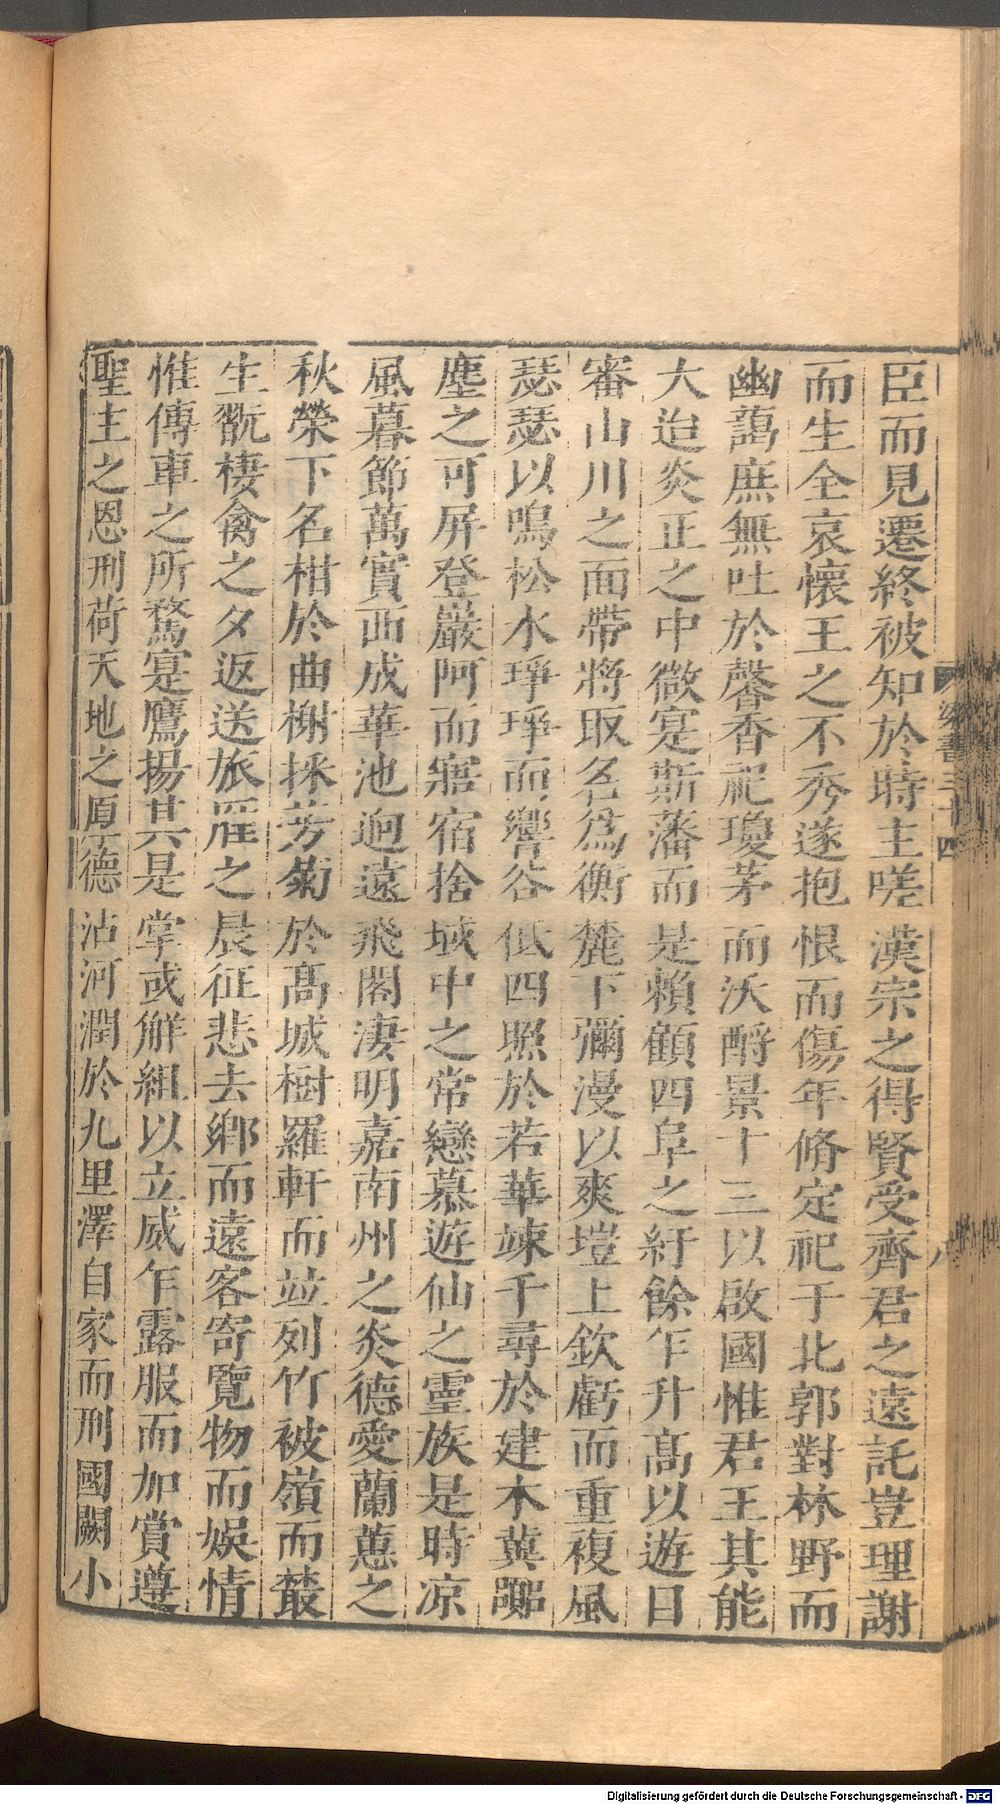 臣而見遷終被知於時主嗟漢宗之得賢受齊君之遠託豈理謝
而生全哀懷王之不秀遂抱恨而傷年脩定祀于北郭對林野而
幽藹庶無吐於馨香祀瓊茅而沃酹景十三以啟國惟君王其能
大迨炎正之中微寔斯藩而是賴顧四阜之紆餘乍升髙以遊目
審山川之面帶將取名爲衡麓下彌漫以爽塏上欽虧而重複風
瑟瑟以鳴松水琤琤而響谷低四照於若華竦千尋於建木冀
塵之可屏登巖阿而寤宿捨域中之常戀慕遊仙之靈族是時凉
風暮節萬實西成華池迥遠飛閣凄明嘉南州之炎德愛蘭蕙之
秋榮下名柑於曲榭採芳菊於髙城樹羅軒而竝列竹被嶺而叢
生翫棲禽之夕返送旅雁之晨征悲去鄉而遠客寄覽物而娛情
惟傳車之所騖寔鷹揚其是掌或解組以立威乍露服而加賞遵
聖主之恩刑荷天地之厚德沾河潤於九里澤自家而刑國闕小
梁書三十四
八
Digitalisierung gefördert durch die Deutsche Forschungsgemeinschaft - DFG